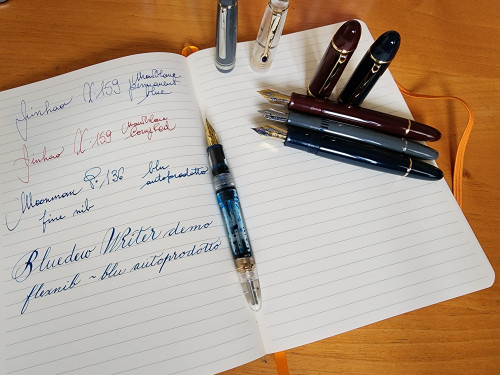 Jinhao X 159 Montblanc
permanent
blue
Jinhao X 159 Montblanc
Moonman P. 136 blu
autoprodotto
fine nib
Bluedew Writer demo
flexnib ~ blu autoprodotto